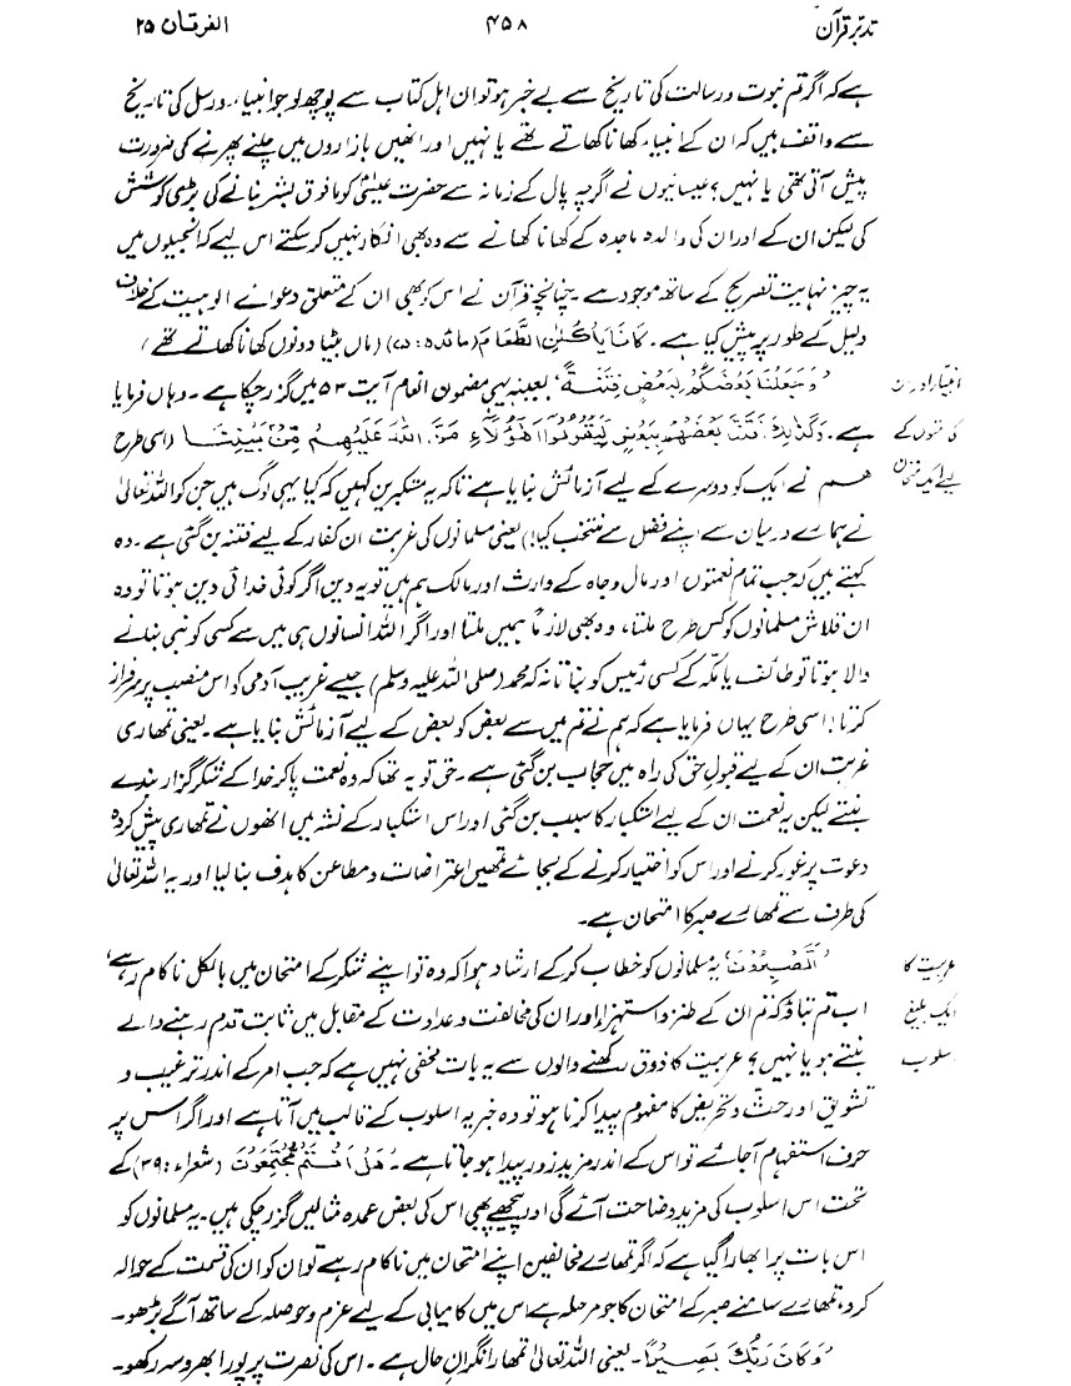 تدبرِ قرآن ۴۵۸ الفرقان ۲۵
ہے کہ اگر تم نبوت و رسالت کی تاریخ سے بے خبر ہو تو ان اہل کتاب سے پوچھ لو جو انبیاء و رسل کی تاریخ
سے واقف ہیں کہ ان کے انبیاء کھانا کھاتے تھے یا نہیں اور انھیں بازاروں میں چلنے پھرنے کی ضرورت
پیش آتی تھی یا نہیں؟ عیسائیوں نے اگرچہ پال کے زمانہ سے حضرت عیسیٰؑ کو مافوق بشر بنانے کی بڑی کوشش
کی لیکن ان کے اور ان کی والدہ ماجدہ کے کھانا کھانے سے وہ بھی انکار نہیں کر سکتے اس لیے کہ انجیلوں میں
یہ چیز نہایت تصریح کے ساتھ موجود ہے۔ چنانچہ قرآن نے اس کو بھی ان کے متعلق دعوائے الوہیت کے خلاف
دلیل کے طور پر پیش کیا ہے۔ کَانَا یَاْکُلٰنِ الطَّعَامَ (مائدہ: ۷۵) (ماں بیٹا دونوں کھانا کھاتے تھے)
'وَجَعَلْنَا بَعْضَکُمْ لِبَعْضٍ فِتْنَةً' بعینہٖ یہی مضمون انعام آیت ۵۳ میں گزر چکا ہے۔ وہاں فرمایا
ہے۔ وَکَذٰلِکَ فَتَنَّا بَعْضَهُمْ بِبَعْضٍ لِّیَقُوْلُوْٓا اَهٰٓؤُلَآءِ مَنَّ اللّٰهُ عَلَیْهِمْ مِّنْۢ بَیْنِنَا (اسی طرح
ہم نے ایک کو دوسرے کے لیے آزمائش بنایا ہے تاکہ یہ متکبرین کہیں کہ کیا یہی لوگ ہیں جن کو اللہ تعالیٰ
نے ہمارے درمیان سے اپنے فضل سے منتخب کیا!) یعنی مسلمانوں کی غربت ان کفار کے لیے فتنہ بن گئی ہے۔ وہ
کہتے ہیں کہ جب تمام نعمتوں اور مال و جاہ کے وارث اور مالک ہم ہیں تو یہ دین اگر کوئی خدائی دین ہوتا تو وہ
ان قلاش مسلمانوں کو کس طرح ملتا، وہ بھی لازماً ہمیں ملتا اور اگر اللہ انسانوں ہی میں سے کسی کو نبی بنانے
والا ہوتا تو طائف یا مکہ کے کسی رئیس کو بناتا نہ کہ محمد (صلی اللہ علیہ وسلم) جیسے غریب آدمی کو اس منصب پر سرفراز
کرتا! اسی طرح یہاں فرمایا ہے کہ ہم نے تم میں سے بعض کو بعض کے لیے آزمائش بنایا ہے۔ یعنی تمھاری
غربت ان کے لیے قبولِ حق کی راہ میں حجاب بن گئی ہے۔ حق تو یہ تھا کہ وہ نعمت پا کر خدا کے شکر گزار بندے
بنتے لیکن یہ نعمت ان کے لیے استکبار کا سبب بن گئی اور اس استکبار کے نشہ میں انھوں نے تمھاری پیش کردہ
دعوت پر غور کرنے اور اس کو اختیار کرنے کے بجائے تمھیں اعتراضات و مطاعن کا ہدف بنا لیا اور یہ اللہ تعالیٰ
کی طرف سے تمھارے صبر کا امتحان ہے۔
'اَتَصْبِرُوْنَ' یہ مسلمانوں کو خطاب کر کے ارشاد ہوا کہ وہ تو اپنے شکر کے امتحان میں بالکل ناکام رہے،
اب تم بتاؤ کہ تم ان کے طنز و استہزاء اور ان کی مخالفت و عداوت کے مقابل میں ثابت قدم رہنے والے
بنتے ہو یا نہیں؟ عربیت کا ذوق رکھنے والوں سے یہ بات مخفی نہیں ہے کہ جب امر کے اندر ترغیب و
تشویق اور حثّ و تحریض کا مفہوم پیدا کرنا ہو تو وہ خبریہ اسلوب کے قالب میں آتا ہے اور اگر اس پر
حرف استفہام آجائے تو اس کے اندر مزید زور پیدا ہو جاتا ہے۔ 'هَلْ اَنْتُمْ مُّجْتَمِعُوْنَ' (شعراء: ۳۹) کے
تحت اس اسلوب کی مزید وضاحت آئے گی اور پیچھے بھی اس کی بعض عمدہ مثالیں گزر چکی ہیں۔ یہ مسلمانوں کو
اس بات پر ابھارا گیا ہے کہ اگر تمھارے مخالفین اپنے امتحان میں ناکام رہے تو ان کو ان کی قسمت کے حوالہ
کرو، تمھارے سامنے صبر کے امتحان کا جو مرحلہ ہے اس میں کامیابی کے لیے عزم و حوصلہ کے ساتھ آگے بڑھو۔
'وَکَانَ رَبُّکَ بَصِیْرًا'۔ یعنی اللہ تعالیٰ تمھارا نگرانِ حال ہے۔ اس کی نصرت پر پورا بھروسہ رکھو۔
کے
لیے ایک امتحان
عربیت کا
ایک بلیغ
اسلوب